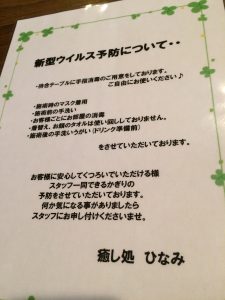 新型ウイルス予防について・・
・待合テーブルに手指消毒のご用意をしております。
ご自由にお使いください♪
・施術時のマスク着用
・施術前の手洗い
・お客様ごとにお部屋の消毒
・着替え、お顔のタオルは使い回ししておりません。
・施術後の手洗いうがい(ドリンク準備前)
をさせていただいております。
お客様に安心してくつろいでいただける様
スタッフ一同できるかぎりの
予防をさせていただいております。
何か気になる事がありましたら
スタッフにお申し付けくださいませ。
癒し処 ひなみ